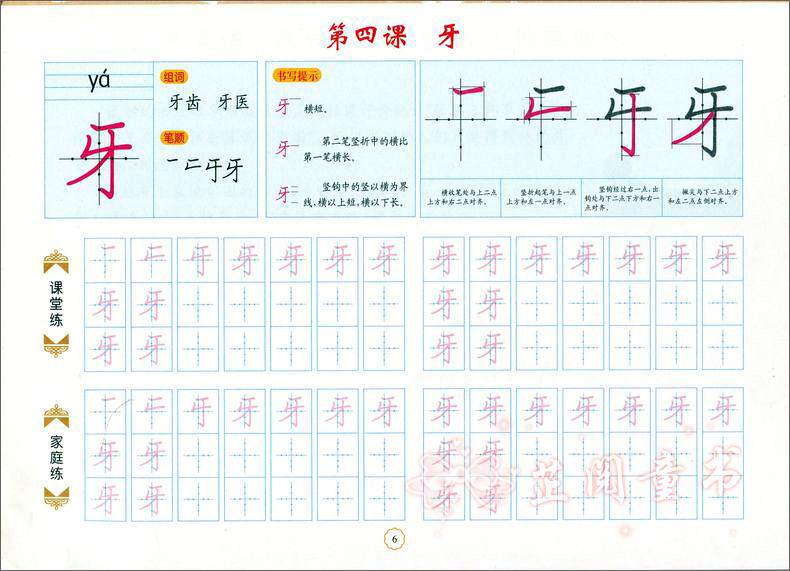 第四课 牙
yá
牙
组词
牙齿 牙医
笔顺
书写提示
牙 横短。
牙 第二笔竖折中的横比
第一笔横长。
牙 竖钩中的竖以横为界
线,横以上短,横以下长。
横收笔处与上二点
上方和右二点对齐。
竖折起笔与上一点
上方和左一点对齐。
竖钩经过右一点,出
钩处与下二点下方和右一
点对齐。
撇尖与下二点上方
和左二点左侧对齐。
课堂练
牙 牙 牙 牙 牙 牙 牙 牙 牙 牙 牙 牙
牙 牙 牙 牙
牙 牙 牙 牙
家庭练
牙 牙 牙 牙 牙 牙 牙 牙 牙 牙 牙
牙 牙 牙 牙
牙 牙 牙 牙
6